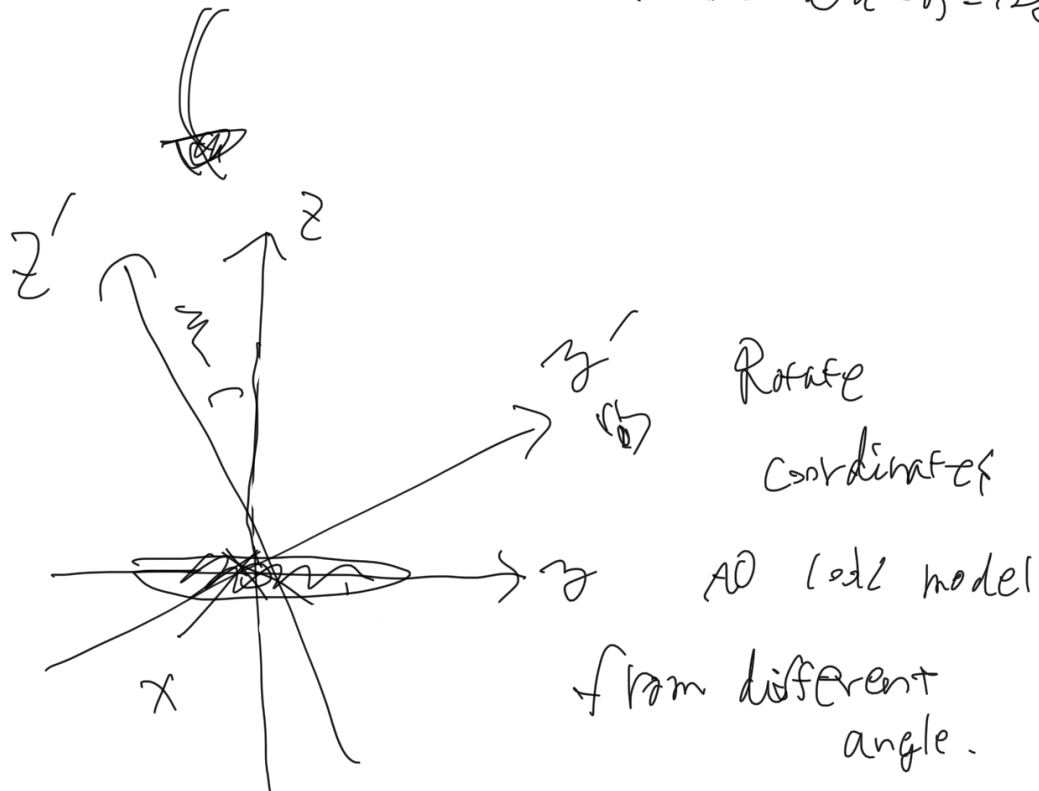 z
z'
ξ
y'
Rotate
coordinates
y
to look model
x
from different
angle.